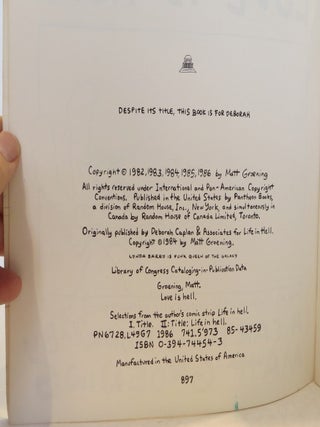 DESPITE ITS TITLE, THIS BOOK IS FOR DEBORAH
Copyright © 1982, 1983, 1984, 1985, 1986 by Matt Groening
All rights reserved under International and Pan-American Copyright
Conventions. Published in the United States by Pantheon Books,
a division of Random House, Inc., New York, and simultaneously in
Canada by Random House of Canada Limited, Toronto.
Originally published by Deborah Caplan & Associates for Life in Hell.
Copyright © 1984 by Matt Groening.
LYNDA BARRY IS FUNK QUEEN OF THE GALAXY
Library of Congress Cataloging-in-Publication Data
Groening, Matt.
Love is hell.
Selections from the author's comic strip Life in Hell.
I. Title. II: Title: Life in hell.
PN6728.L49G7 1986 741.5'973 85-43459
ISBN 0-394-74454-3
Manufactured in the United States of America
897